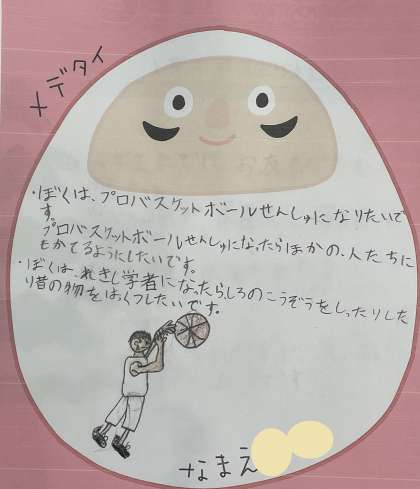 メデタイ
・ぼくは、プロバスケットボールせんしゅになりたいで
す。
プロバスケットボールせんしゅになったらほかの、人たちに
もかてるようにしたいです。
・ぼくは、れきし学者になったら、しろのこうぞうをしったりした
り昔の物をはくつしたいです。
なまえ